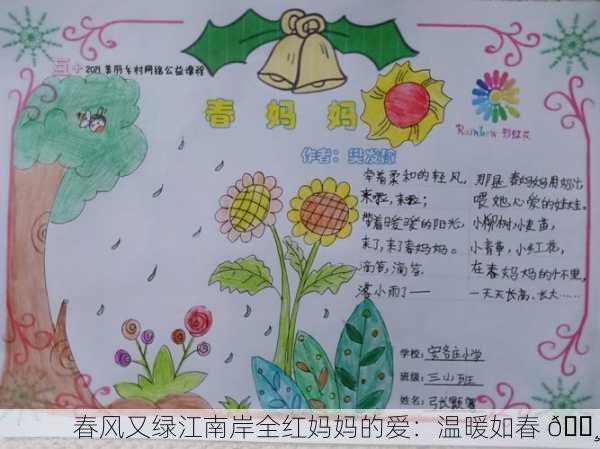 三小 2019美丽乡村网络公益课程
春妈妈
作者：樊发稼
Rainbow 彩虹花
牵着柔和的轻风，
来啦，来啦；
带着暖暖的阳光，
来了，来了春妈妈。
滴答，滴答
落小雨了——
那是春妈妈用奶汁
喂她心爱的娃娃。
小柳树，小麦苗，
小青草，小红花，
在春妈妈的怀里，
一天天长高、长大……
学校：安务庄小学
班级：三小班
姓名：
春风又绿江南岸全红妈妈的爱：温暖如春